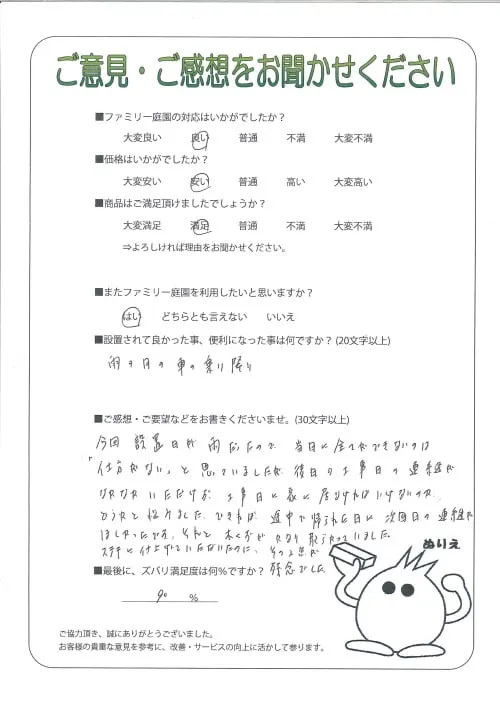 ご意見・ご感想をお聞かせください
■ファミリー庭園の対応はいかがでしたか?
大変良い 良い 普通 不満 大変不満
■価格はいかがでしたか?
大変安い 安い 普通 高い 大変高い
■商品はご満足頂けましたでしょうか?
大変満足 満足 普通 不満 大変不満
⇒よろしければ理由をお聞かせください。
■またファミリー庭園を利用したいと思いますか?
はい どちらとも言えない いいえ
■設置されて良かった事、便利になった事は何ですか?(20文字以上)
雨の日の車の乗り降り
■ご感想・ご要望などをお書きくださいませ。(30文字以上)
今回 設置日が 雨だったので、当日に全てができないのは
「仕方がない」と思っていましたが 後日の工事日の連絡が
なかなかいただけず、工事日に家に居なければいけないのか、
どうかと悩みました。できれば 途中で帰られた日に 次回日の連絡が
ほしかったです。それと
ステキに仕上げていただいたのに、その2点が
残念でした。
■最後に、ズバリ満足度は何%ですか?
90 %
ぬりえ
ご協力頂き、誠にありがとうございました。
お客様の貴重な意見を参考に、改善・サービスの向上に活かして参ります。